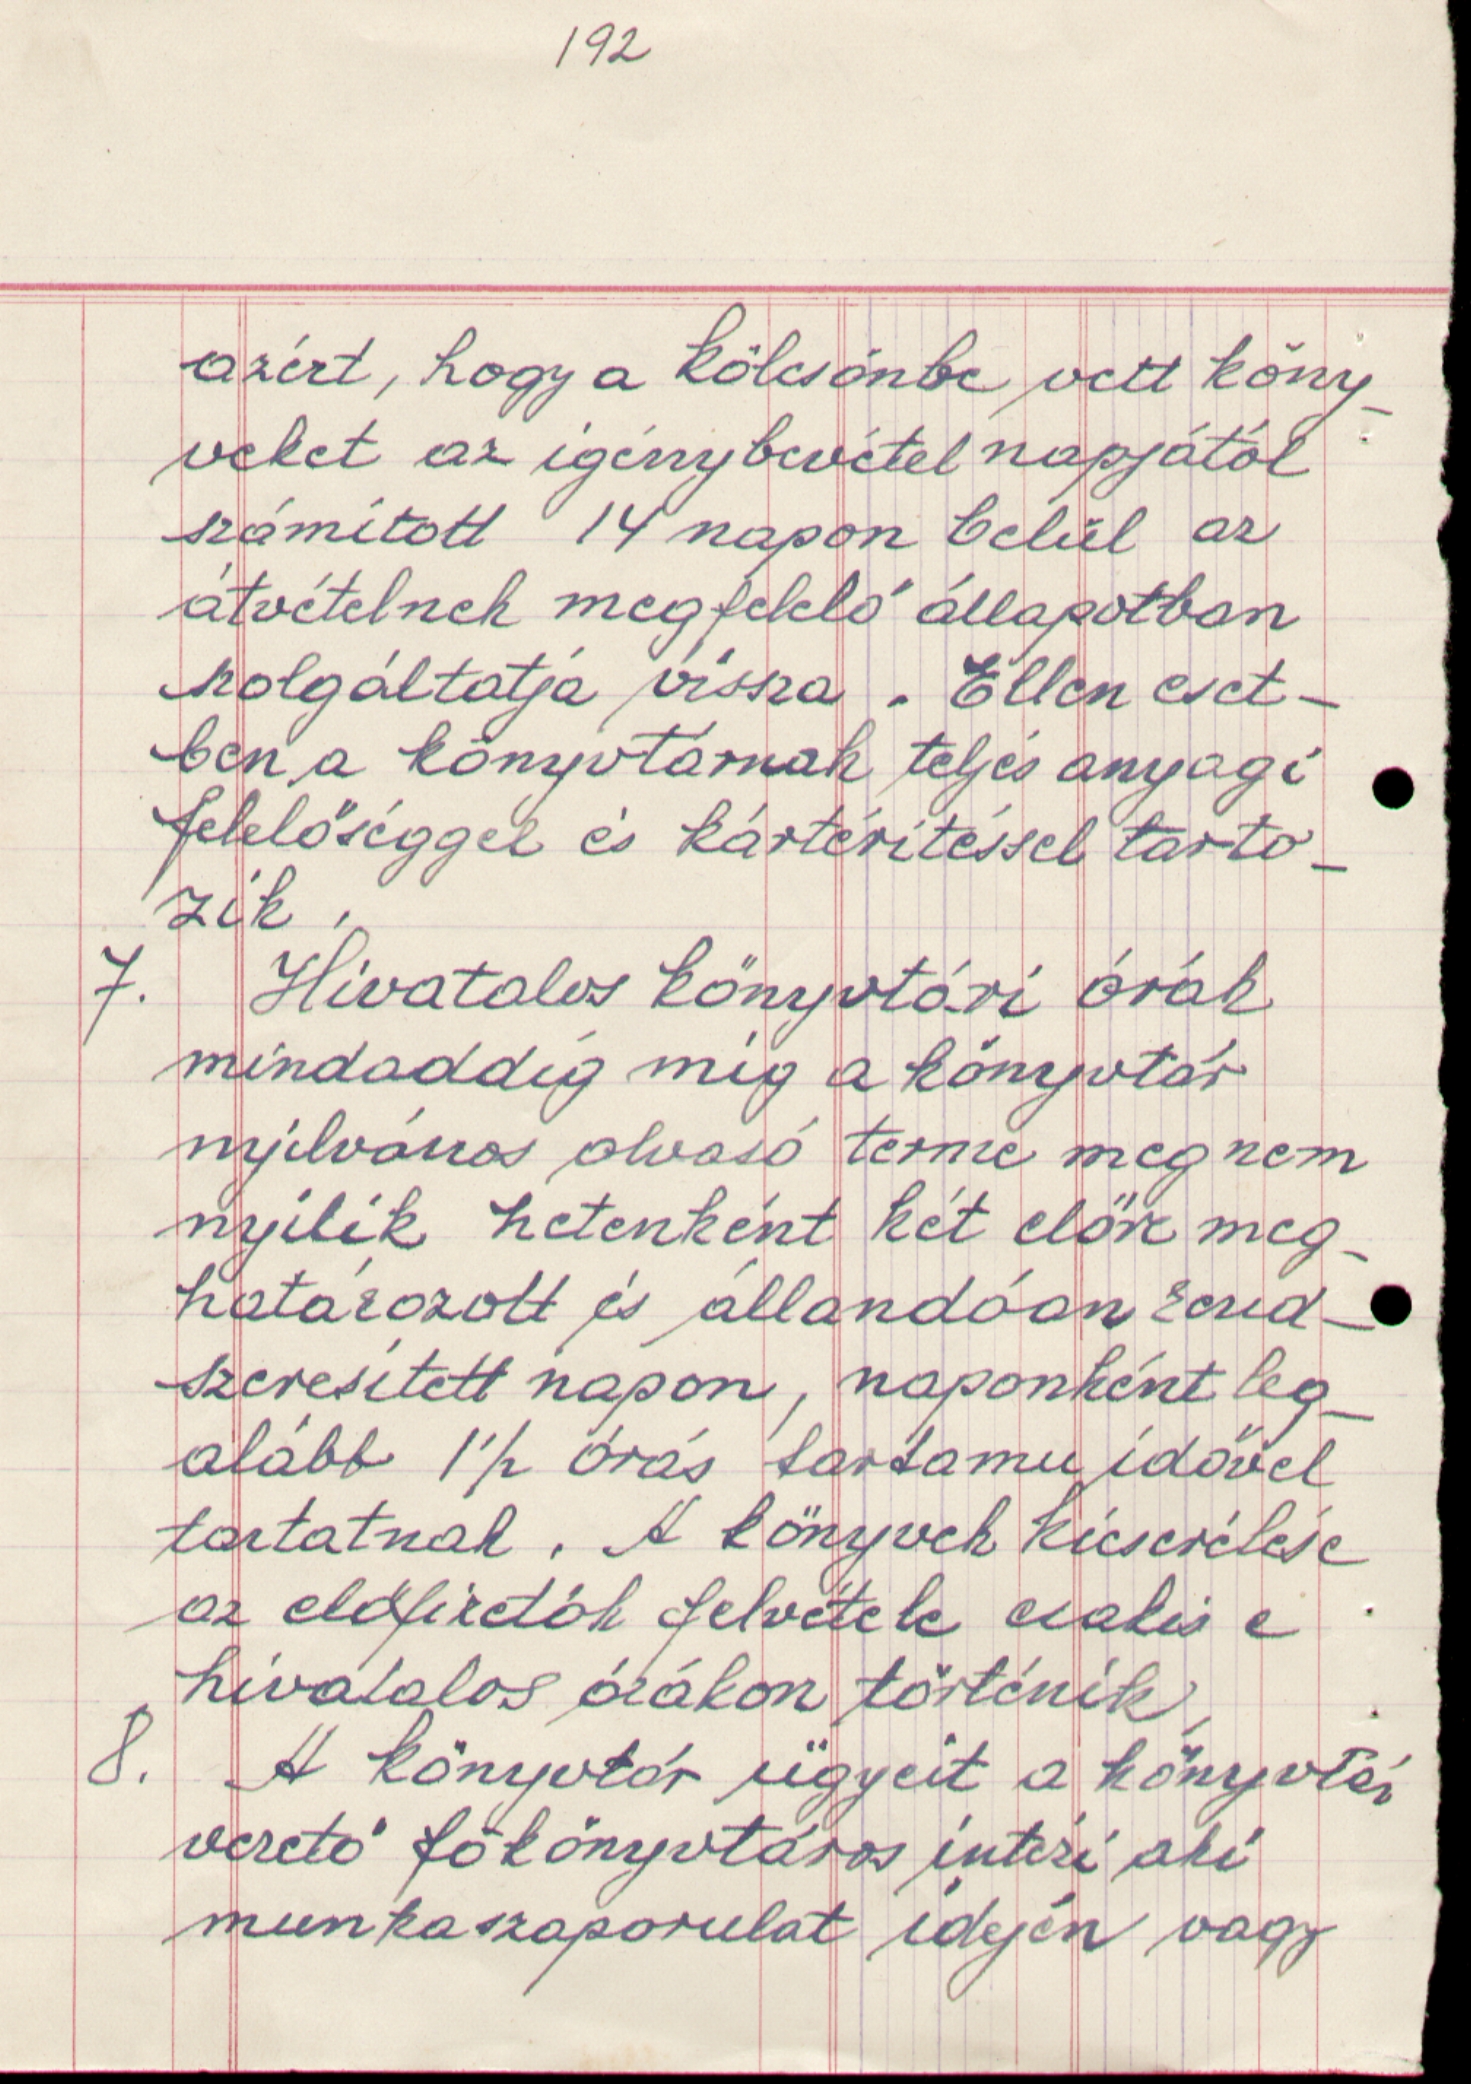 192
azért, hogy a kölcsönbe vett köny-
veket az igénybevétel napjától
számított 14 napon belül az
átvételnek megfelelő állapotban
szolgáltatja vissza. Ellen eset-
ben a könyvtárnak teljes anyagi
felelőséggel és kártérítéssel tarto-
zik.
7. Hivatalos könyvtári órák
mindaddig míg a könyvtár
nyilvános olvasó terme meg nem
nyílik hetenként két előre meg-
határozott és állandóan rend-
szeresített napon, naponként leg-
alább 1½ órás tartamu idővel
tartatnak. A könyvek kicserélése
az előfizetők felvétele csakis e
hivatalos órákon történik.
8. A könyvtár ügyeit a könyvtár
vezető főkönyvtáros intézi aki
munkaszaporulat idején vagy